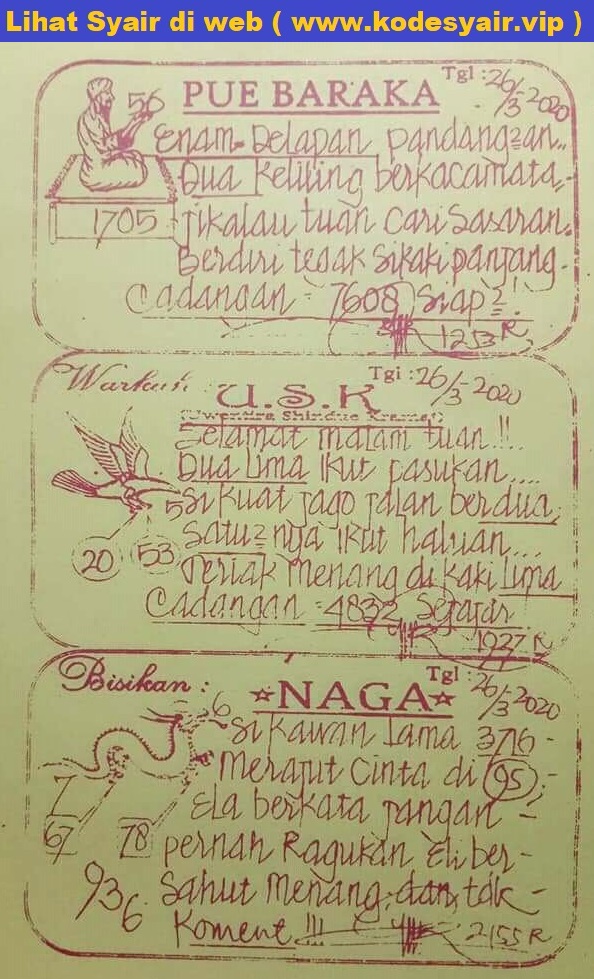 Lihat Syair di web ( www.kodesyair.vip )
PUE BARAKA
Tgl : 26/3 2020
56
Enam-Delapan pandang2an..
Dua Keliling berkacamata,-
1705
Jikalau tuan cari Sasaran.
Berdiri tegak Sikaki panjang-
Cadangan = 7608 Siap2!
1253 R
U.S.K
Tgl : 26/3-2020
Selamat malam tuan.!!..
Dua Lima ikut pasukan....
5
Si Kuat jago jalan berdua,
Satu2nya ikut haluan...
20
53
Teriak Menang di kaki Lima
Cadangan = 4832 Sejajar
1927 R
Bisikan :
☆NAGA☆
Tgl : 26/3 2020
6
Si Kawan Lama 3716-
Merajut Cinta di 95,-
7
Ela berkata jangan -
67
78
pernah Ragukan Eli ber-
936
Sahut Menang, dan tak -
Koment !!!
2155 R